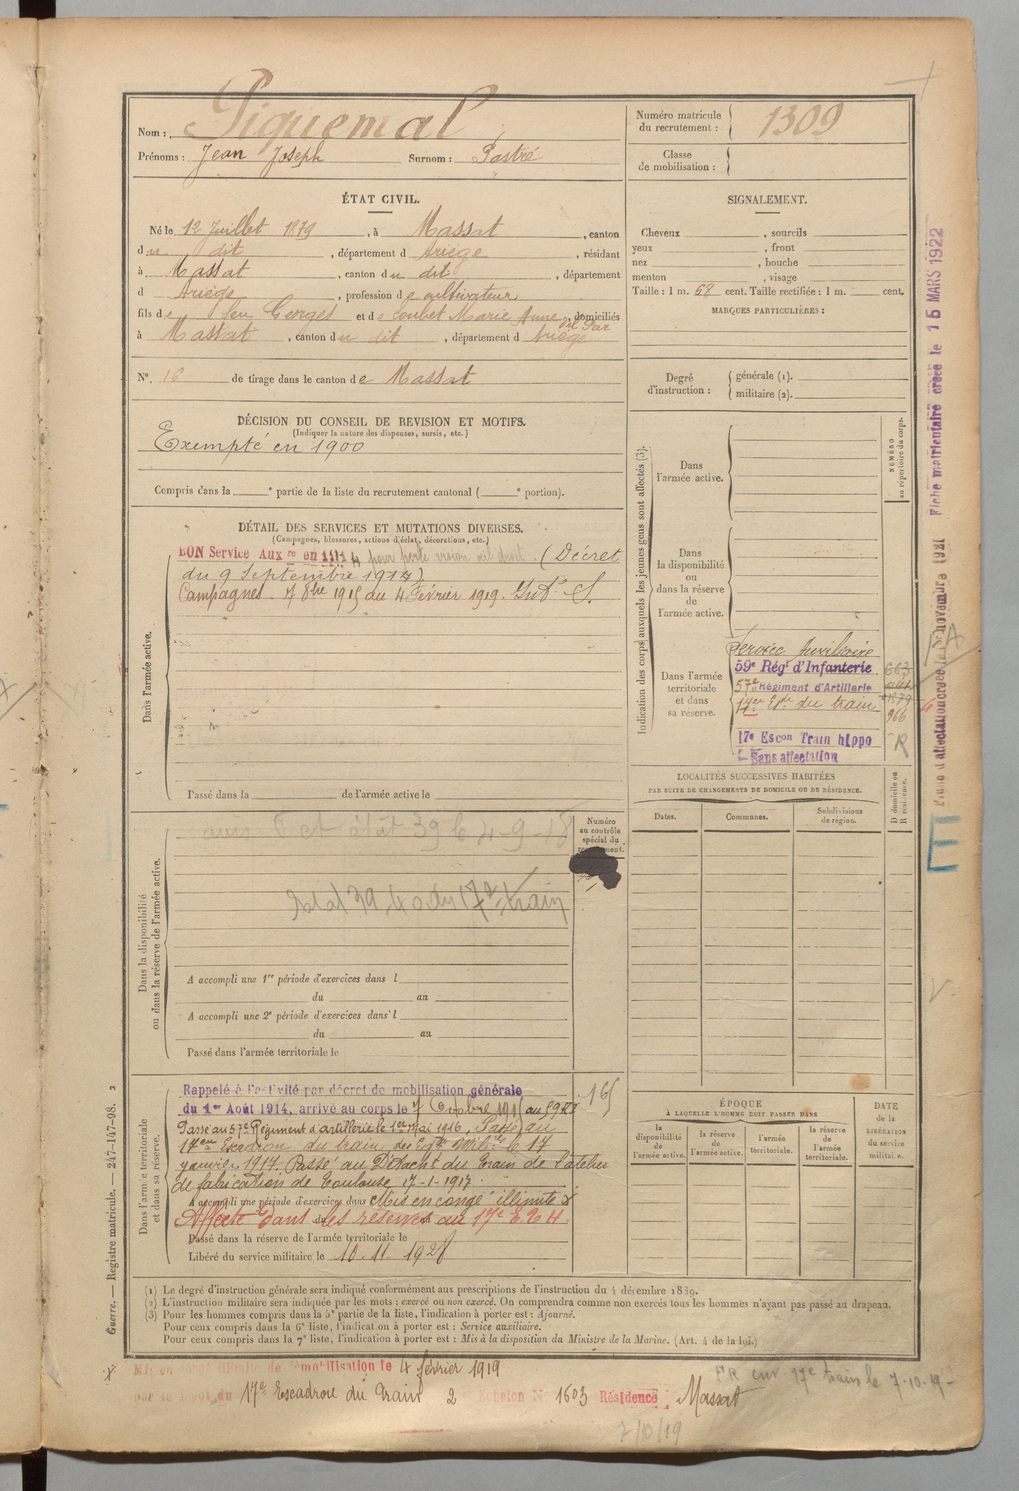 Nom : Piquemal
Prénoms : Jean Joseph Surnom : Pastré
Numéro matricule
du recrutement : 1309
Classe
de mobilisation :
ÉTAT CIVIL.
Né le 12 Juillet 1879, à Massat, canton
du dit, département d Ariège, résidant
à Massat, canton du dit, département
d Ariège, profession de cultivateur
fils de feu Georges et de Loubet Marie Anne, domiciliés
à Massat, canton du dit, département d Ariège
N°. 16 de tirage dans le canton de Massat
DÉCISION DU CONSEIL DE REVISION ET MOTIFS.
(Indiquer la nature des dispenses, sursis, etc.)
Exempté en 1900
Compris dans la e partie de la liste du recrutement cantonal ( e portion).
DÉTAIL DES SERVICES ET MUTATIONS DIVERSES.
(Campagnes, blessures, actions d'éclat, décorations, etc.)
BON Service Aux re en 1914 pour perte vision œil droit (Décret
du 9 Septembre 1914)
Campagnes 7 8bre 1915 au 4 Février 1919. Int. S.
Dans l'armée active.
Passé dans la de l'armée active le
Dans la disponibilité
ou dans la réserve de l'armée active.
Numéro
au contrôle
spécial du
et état 39 le 4-9-18
39 40 du 17e train
A accompli une 1re période d'exercices dans l
du au
A accompli une 2e période d'exercices dans l
du au
Passé dans l'armée territoriale le
Dans l'armée territoriale
et dans sa réserve.
Rappelé à l'activité par décret de mobilisation générale
du 1er Août 1914, arrivé au corps le 7 Octobre 1915 au 59 RI
165
Passé au 57e Régiment d'Artillerie le 1er Mai 1916, Passé au
17em Escadron du train des Eqes Milres le 17
janvier 1917. Passé au Détacht du Train de l'atelier
de fabrication de Toulouse 17-1-1917.
A accompli une période d'exercices dans Mis en congé illimité
Affecté dans les réserves au 17e E T H
Passé dans la réserve de l'armée territoriale le
Libéré du service militaire le 10.11.1928
SIGNALEMENT.
Cheveux , sourcils
yeux , front
nez , bouche
menton , visage
Taille : 1 m. 68 cent. Taille rectifiée : 1 m. cent.
MARQUES PARTICULIÈRES :
Degré
d'instruction :
générale (1).
militaire (2).
Indication des corps auxquels les jeunes gens sont affectés (3).
NUMÉRO
au répertoire du corps.
Dans
l'armée active.
Dans
la disponibilité
ou
dans la réserve
de
l'armée active.
Dans l'armée
territoriale
et dans
sa réserve.
Service Auxiliaire
59e Régt d'Infanterie 663
57e Régiment d'Artillerie
17em Esc. du train
966
17e Escon Train hippo
Sans affectation
R
LOCALITÉS SUCCESSIVES HABITÉES
PAR SUITE DE CHANGEMENTS DE DOMICILE OU DE RÉSIDENCE.
D domicile ou
R résidence.
Dates. Communes. Subdivisions
de région.
ÉPOQUE
À LAQUELLE L'HOMME DOIT PASSER DANS
DATE
de la
LIBÉRATION
du service
militaire.
la
disponibilité
de
l'armée active.
la
réserve
de
l'armée active.
l'armée
territoriale.
la
réserve
de
l'armée
territoriale.
Fiche matriculaire créée le 15 MARS 1922
Fiche d'affectation créée le novembre 1921
E
Guerre. — Registre matricule. — 247-147-98. 2
(1) Le degré d'instruction générale sera indiqué conformément aux prescriptions de l'instruction du 4 décembre 1889.
(2) L'instruction militaire sera indiquée par les mots : exercé ou non exercé. On comprendra comme non exercés tous les hommes n'ayant pas passé au drapeau.
(3) Pour les hommes compris dans la 5e partie de la liste, l'indication à porter est : Ajourné.
Pour ceux compris dans la 6e liste, l'indication à porter est : Service auxiliaire.
Pour ceux compris dans la 7e liste, l'indication à porter est : Mis à la disposition du Ministre de la Marine. (Art. 4 de la loi.)
Mis en congé illimité de démobilisation le 4 février 1919
par le dépôt du 17e Escadron du Train 2 Echelon N° 1603 Résidence Massat
17e train le 7-10-19
7/10/19